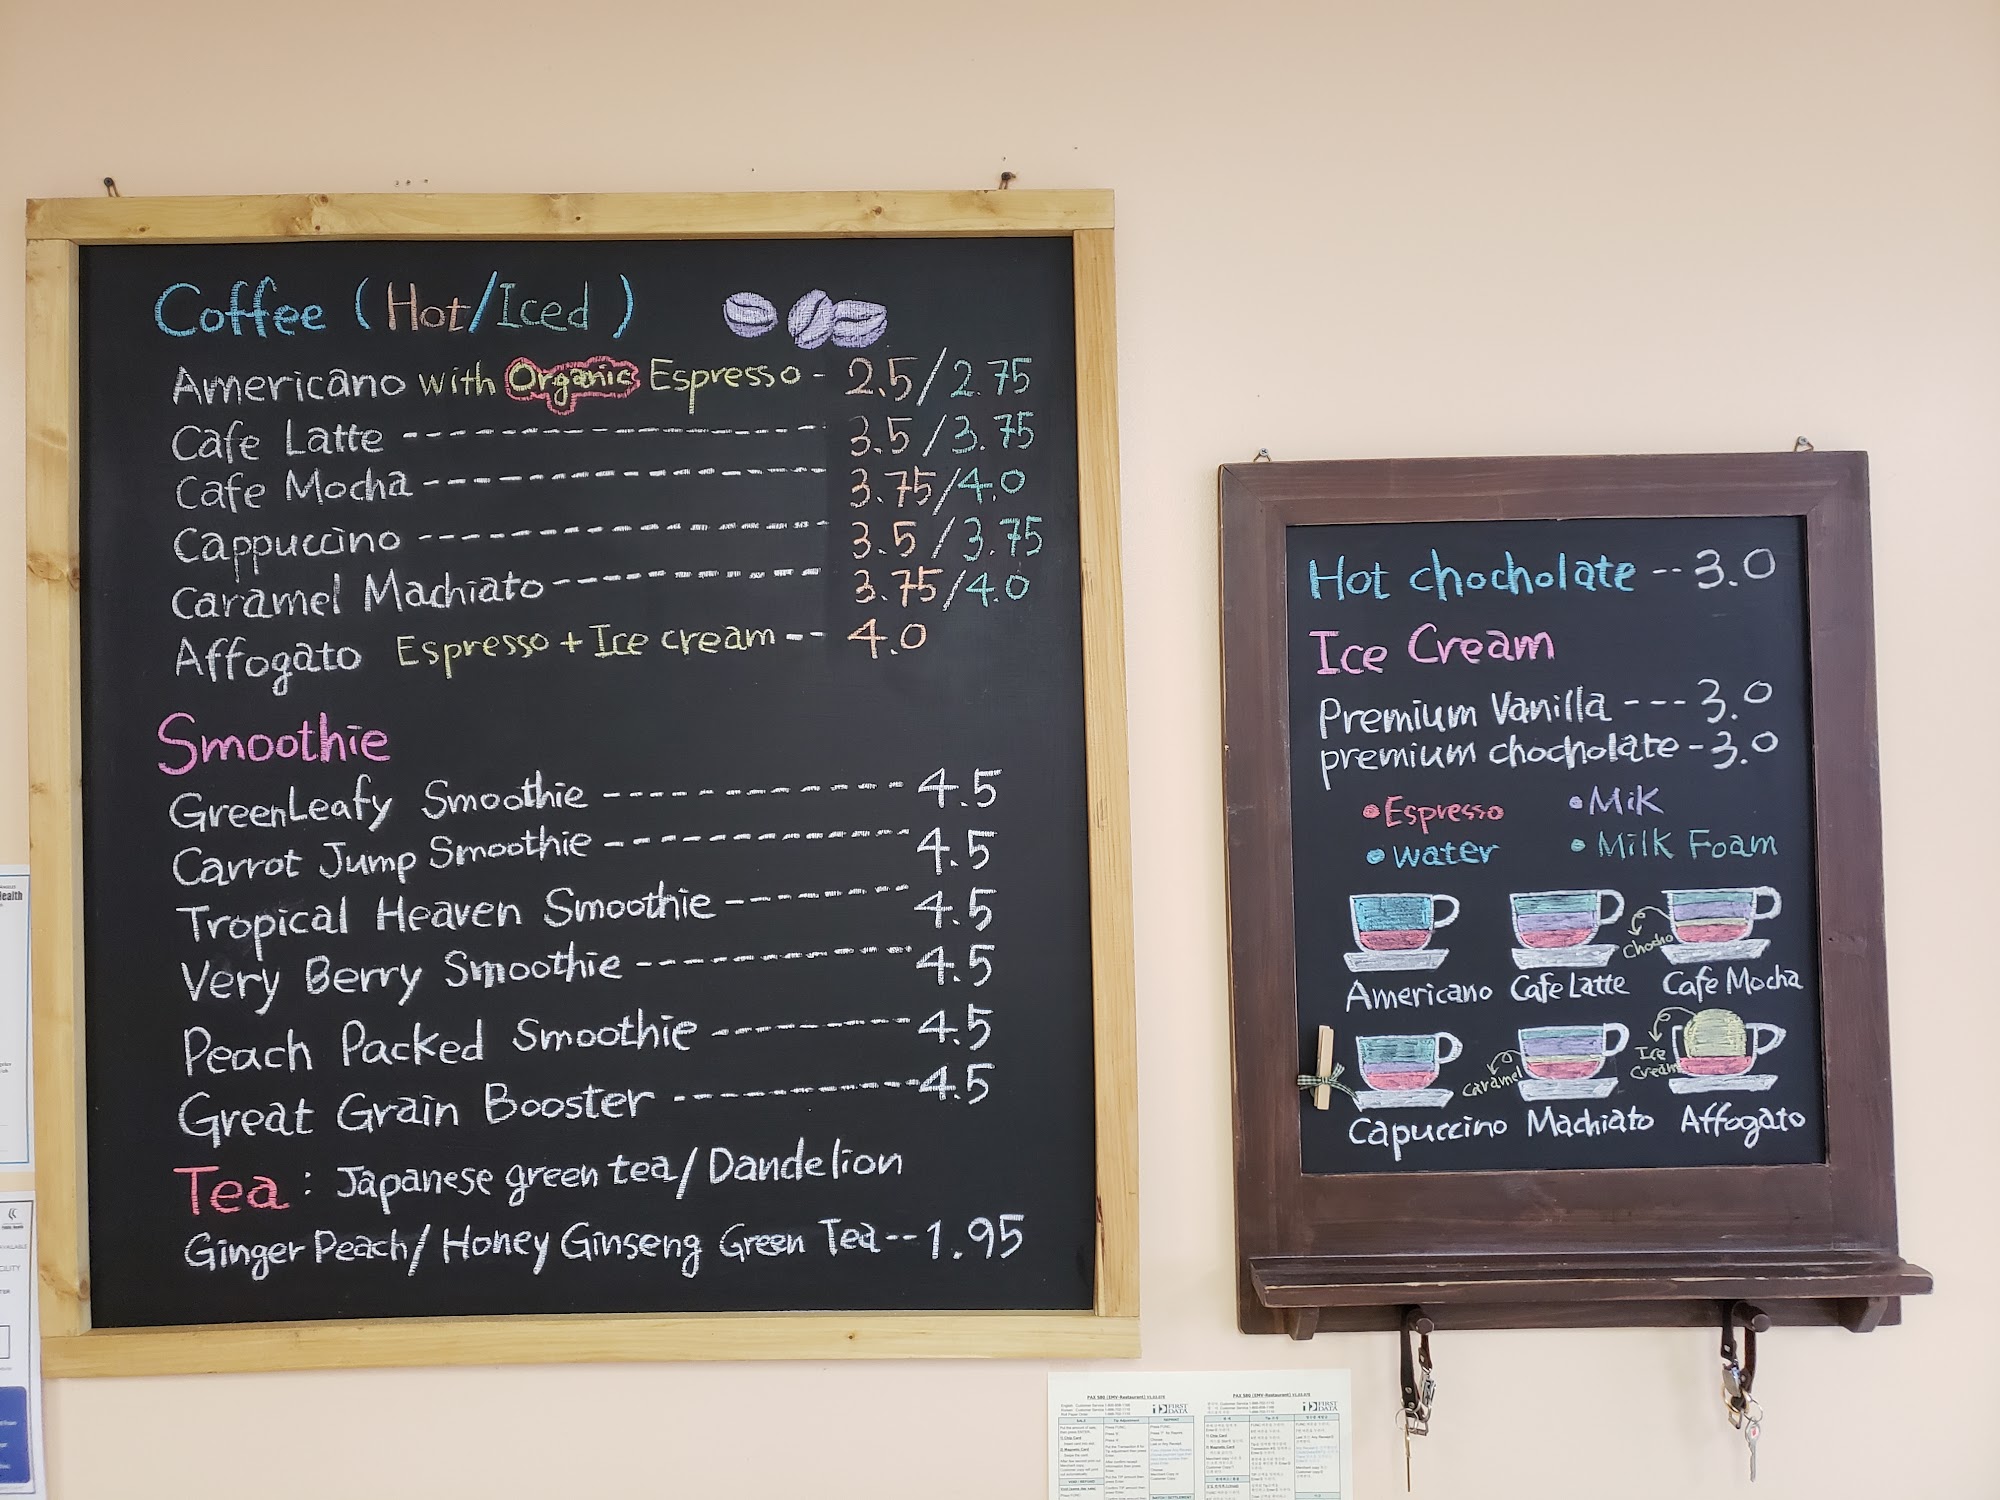 Coffee (Hot/Iced)
Americano with Organic Espresso - 2.5/2.75
Cafe Latte ---------------- 3.5/3.75
Cafe Mocha ---------------- 3.75/4.0
Cappuccino ---------------- 3.5/3.75
Caramel Machiato ---------- 3.75/4.0
Affogato Espresso + Ice cream -- 4.0
Smoothie
GreenLeafy Smoothie ----------- 4.5
Carrot Jump Smoothie ----------- 4.5
Tropical Heaven Smoothie ------- 4.5
Very Berry Smoothie ---------- 4.5
Peach Packed Smoothie -------- 4.5
Great Grain Booster ---------- 4.5
Tea : Japanese green tea/Dandelion
Ginger Peach/Honey Ginseng Green Tea -- 1.95
Hot chocholate -- 3.0
Ice Cream
Premium Vanilla --- 3.0
premium chocholate - 3.0
•Espresso •Milk
•Water •Milk Foam
Chocho
Americano Cafe Latte Cafe Mocha
Caramel Ice Cream
Capuccino Machiato Affogato
FIRST DATA
FIRST DATA